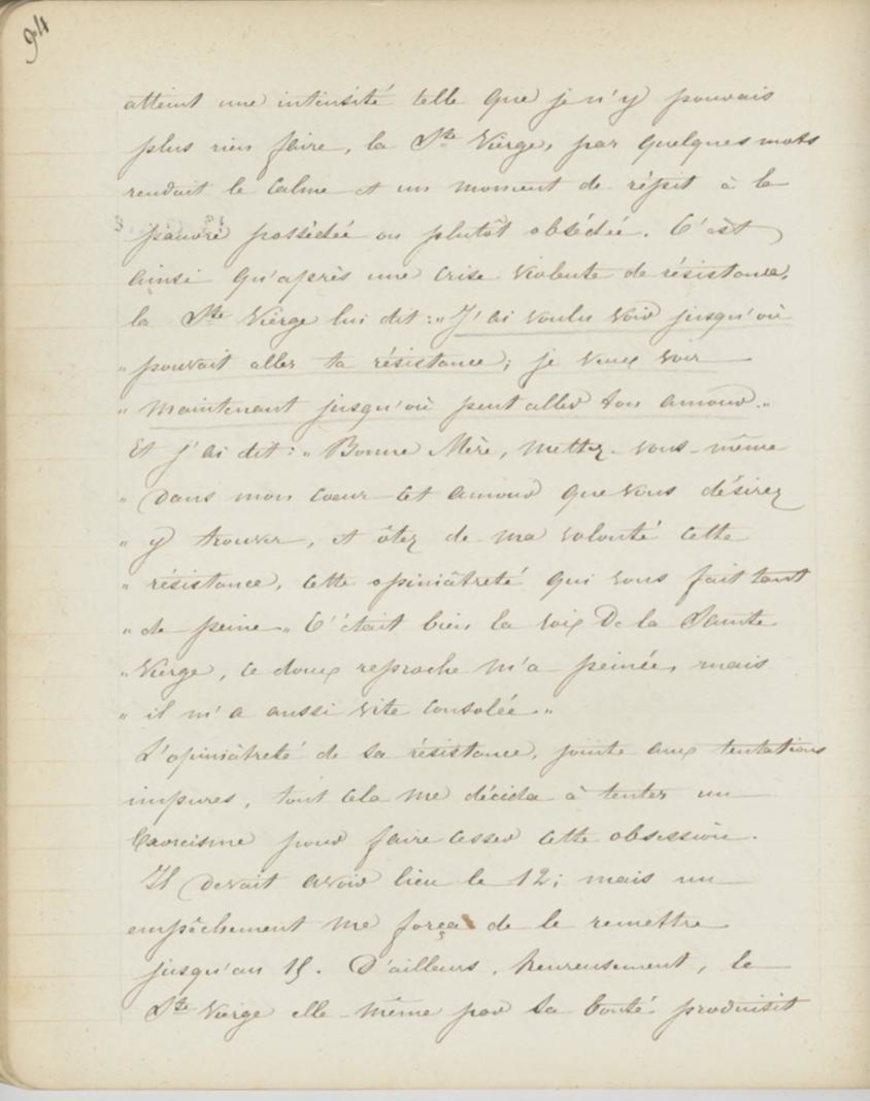 94
atteint une intensité telle que je n'y pouvais
plus rien faire, la Ste Vierge, par quelques mots
rendait le calme et un moment de répit à la
pauvre possédée ou plutôt obsédée. C'est
ainsi qu'après une crise violente de résistance,
la Ste Vierge lui dit : "J'ai voulu voir jusqu'où
" pouvait aller ta résistance ; je veux voir
" maintenant jusqu'où peut aller ton amour."
Et j'ai dit : "Bonne Mère, mettez-vous-même
" dans mon cœur cet amour que vous désirez
" y trouver, et ôtez de ma volonté cette
" résistance, cette opiniâtreté qui vous fait tant
" de peine" C'était bien la voix De la Sainte
" Vierge, ce doux reproche m'a peinée, mais
" il m'a aussi vite consolée"
L'opiniâtreté de sa résistance, jointe aux tentations
impures, tout cela me décida à tenter un
Exorcisme pour faire cesser cette obsession.
Il devait avoir lieu le 12 ; mais un
empêchement me força de le remettre
jusqu'au 15. D'ailleurs, heureusement, la
Ste Vierge elle-même par sa bonté produisit